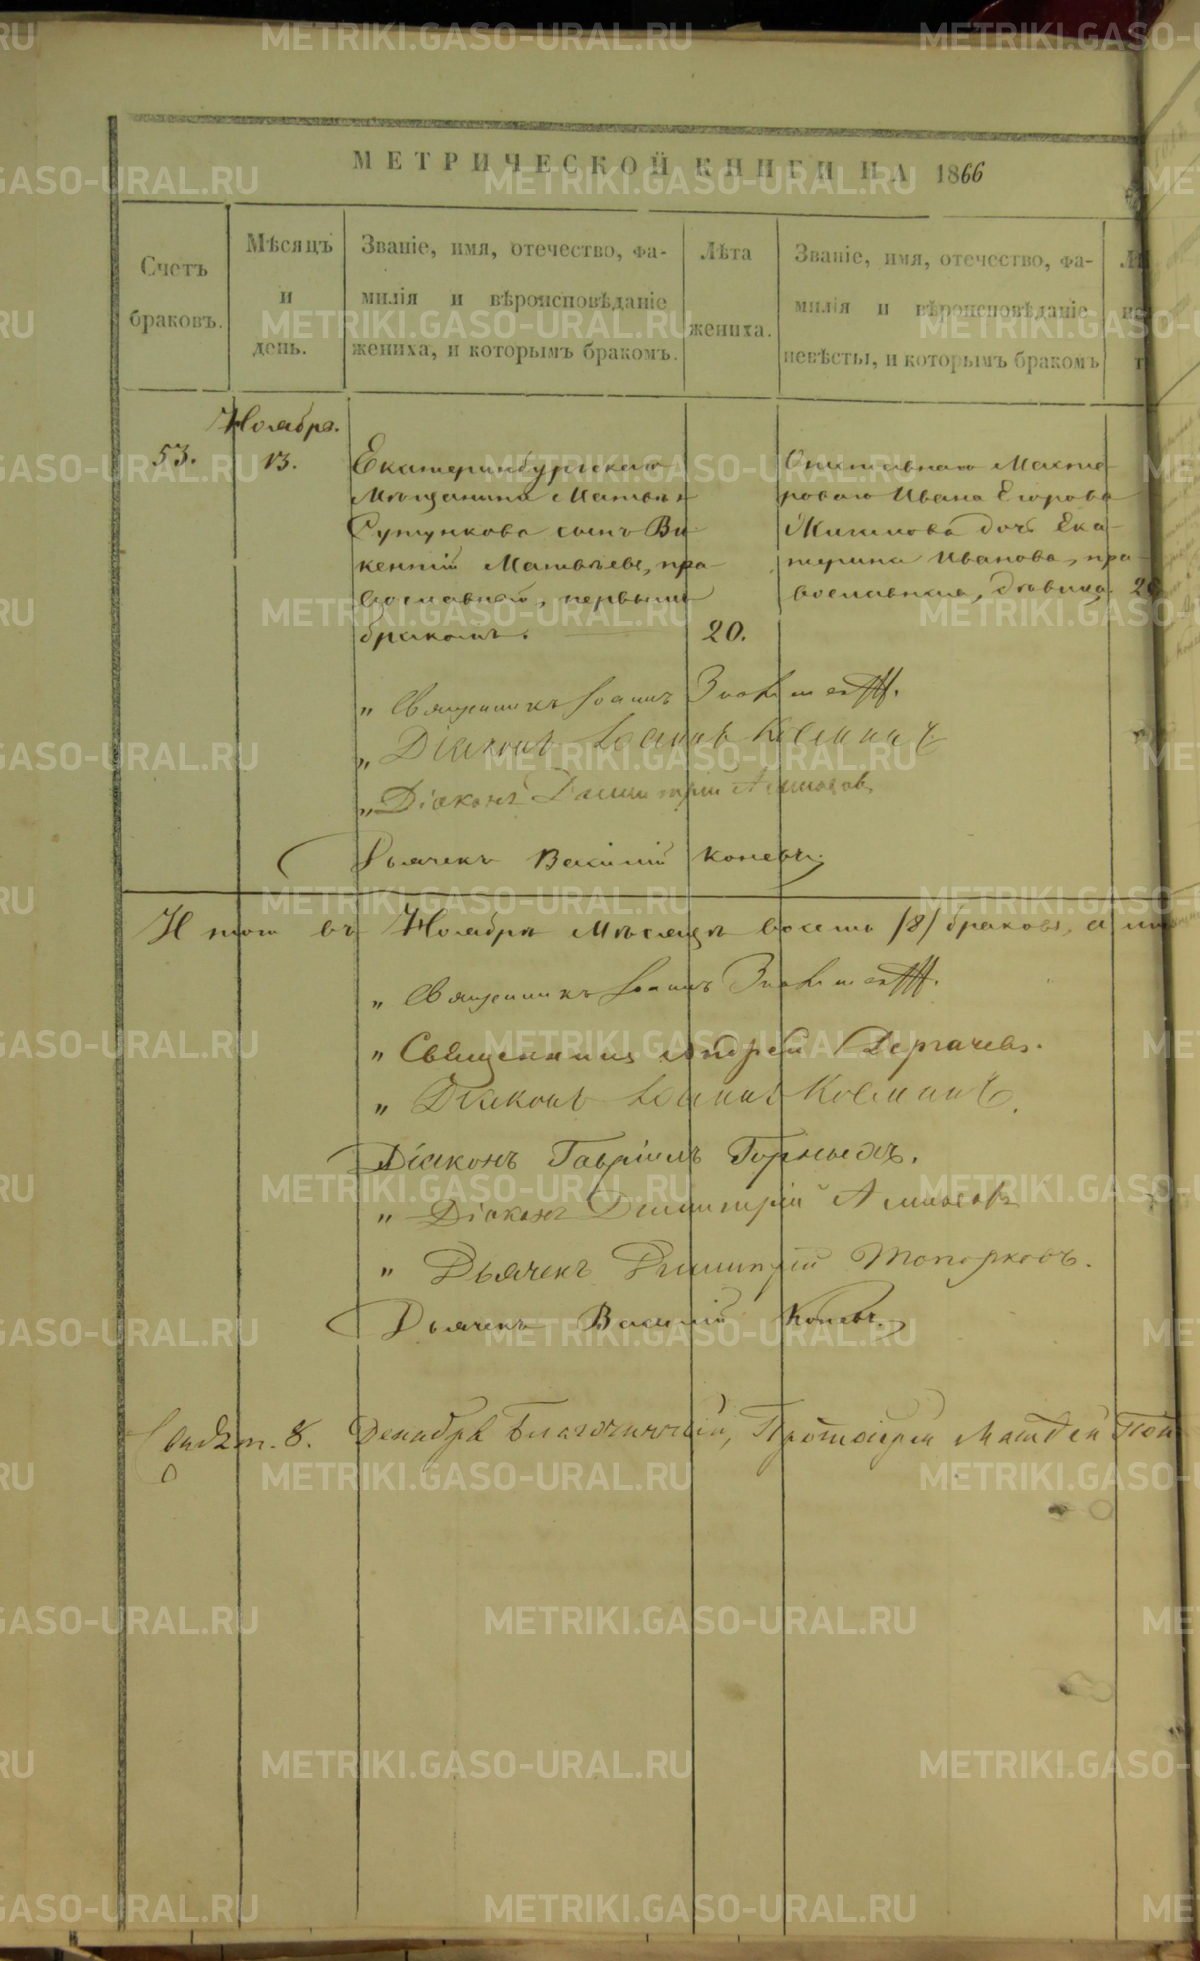 МЕТРИЧЕСКОЙ КНИГИ НА 1866
Счетъ браковъ.
Мѣсяцъ и день.
Званіе, имя, отечество, фамилія и вѣроисповѣданіе жениха, и которымъ бракомъ.
Лѣта жениха.
Званіе, имя, отечество, фамилія и вѣроисповѣданіе невѣсты, и которымъ бракомъ
Ноября.
53.
13.
Екатеринбургскаго
Мѣщанина Матвѣя
Сутункова сынъ Ви-
кентій Матвѣевъ, пра-
вославной, первымъ
бракомъ.
20.
Отставнаго Масте-
роваго Ивана Егорова
дочь Ека-
терина Иванова, пра-
вославная, дѣвица.
" Священникъ Іоаннъ
" Діаконъ Іоаннъ Косминъ
" Діаконъ Димитрій
Дьячекъ Василій Коневъ
Итого въ Ноябрѣ мѣсяцѣ восемь /8/ браковъ, а
" Священникъ Іоаннъ
" Священникъ Андрей Дергачевъ.
" Діаконъ Іоаннъ Косминъ.
Діаконъ Гавріилъ Горныхъ.
" Діаконъ Димитрій
" Дьячекъ Димитрій Топорковъ.
Дьячекъ Василій Коневъ.
8. Декабря Благочинный, Протоіерей Матѳей
METRIKI.GASO-URAL.RU